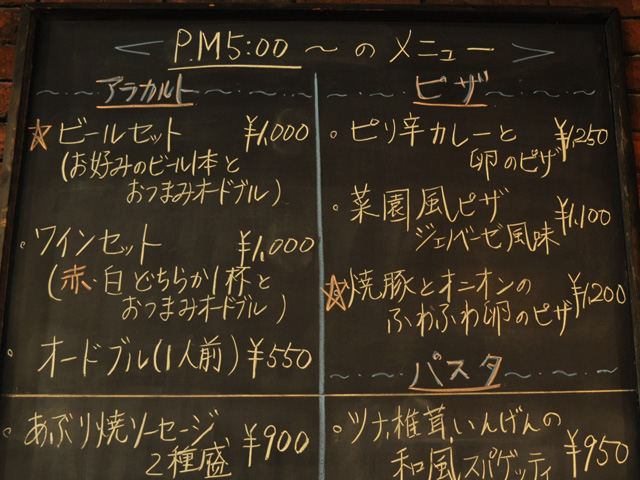 P.M5:00 〜 の メニュー
アラカルト
☆ビールセット ¥1,000
(お好みのビール1本と
おつまみオードブル)
・ワインセット ¥1,000
(赤・白 どちらか1杯と
おつまみオードブル)
・オードブル(1人前) ¥550
・あぶり焼ソーセージ
2種盛 ¥900
ピザ
・ピリ辛カレーと ¥1,250
卵のピザ
・菜園風ピザ ¥1,100
ジェノベーゼ風味
☆焼豚とオニオンの ¥1,200
ふわふわ卵のピザ
パスタ
・ツナ,椎茸,いんげんの
和風スパゲッティ ¥950